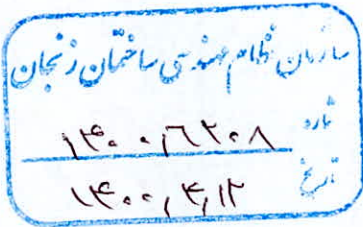 سازمان نظام مهندسی ساختمان زنجان
شماره ۱۴۰۰,۶۲۰۸
تاریخ ۱۴۰۰,۴,۱۲